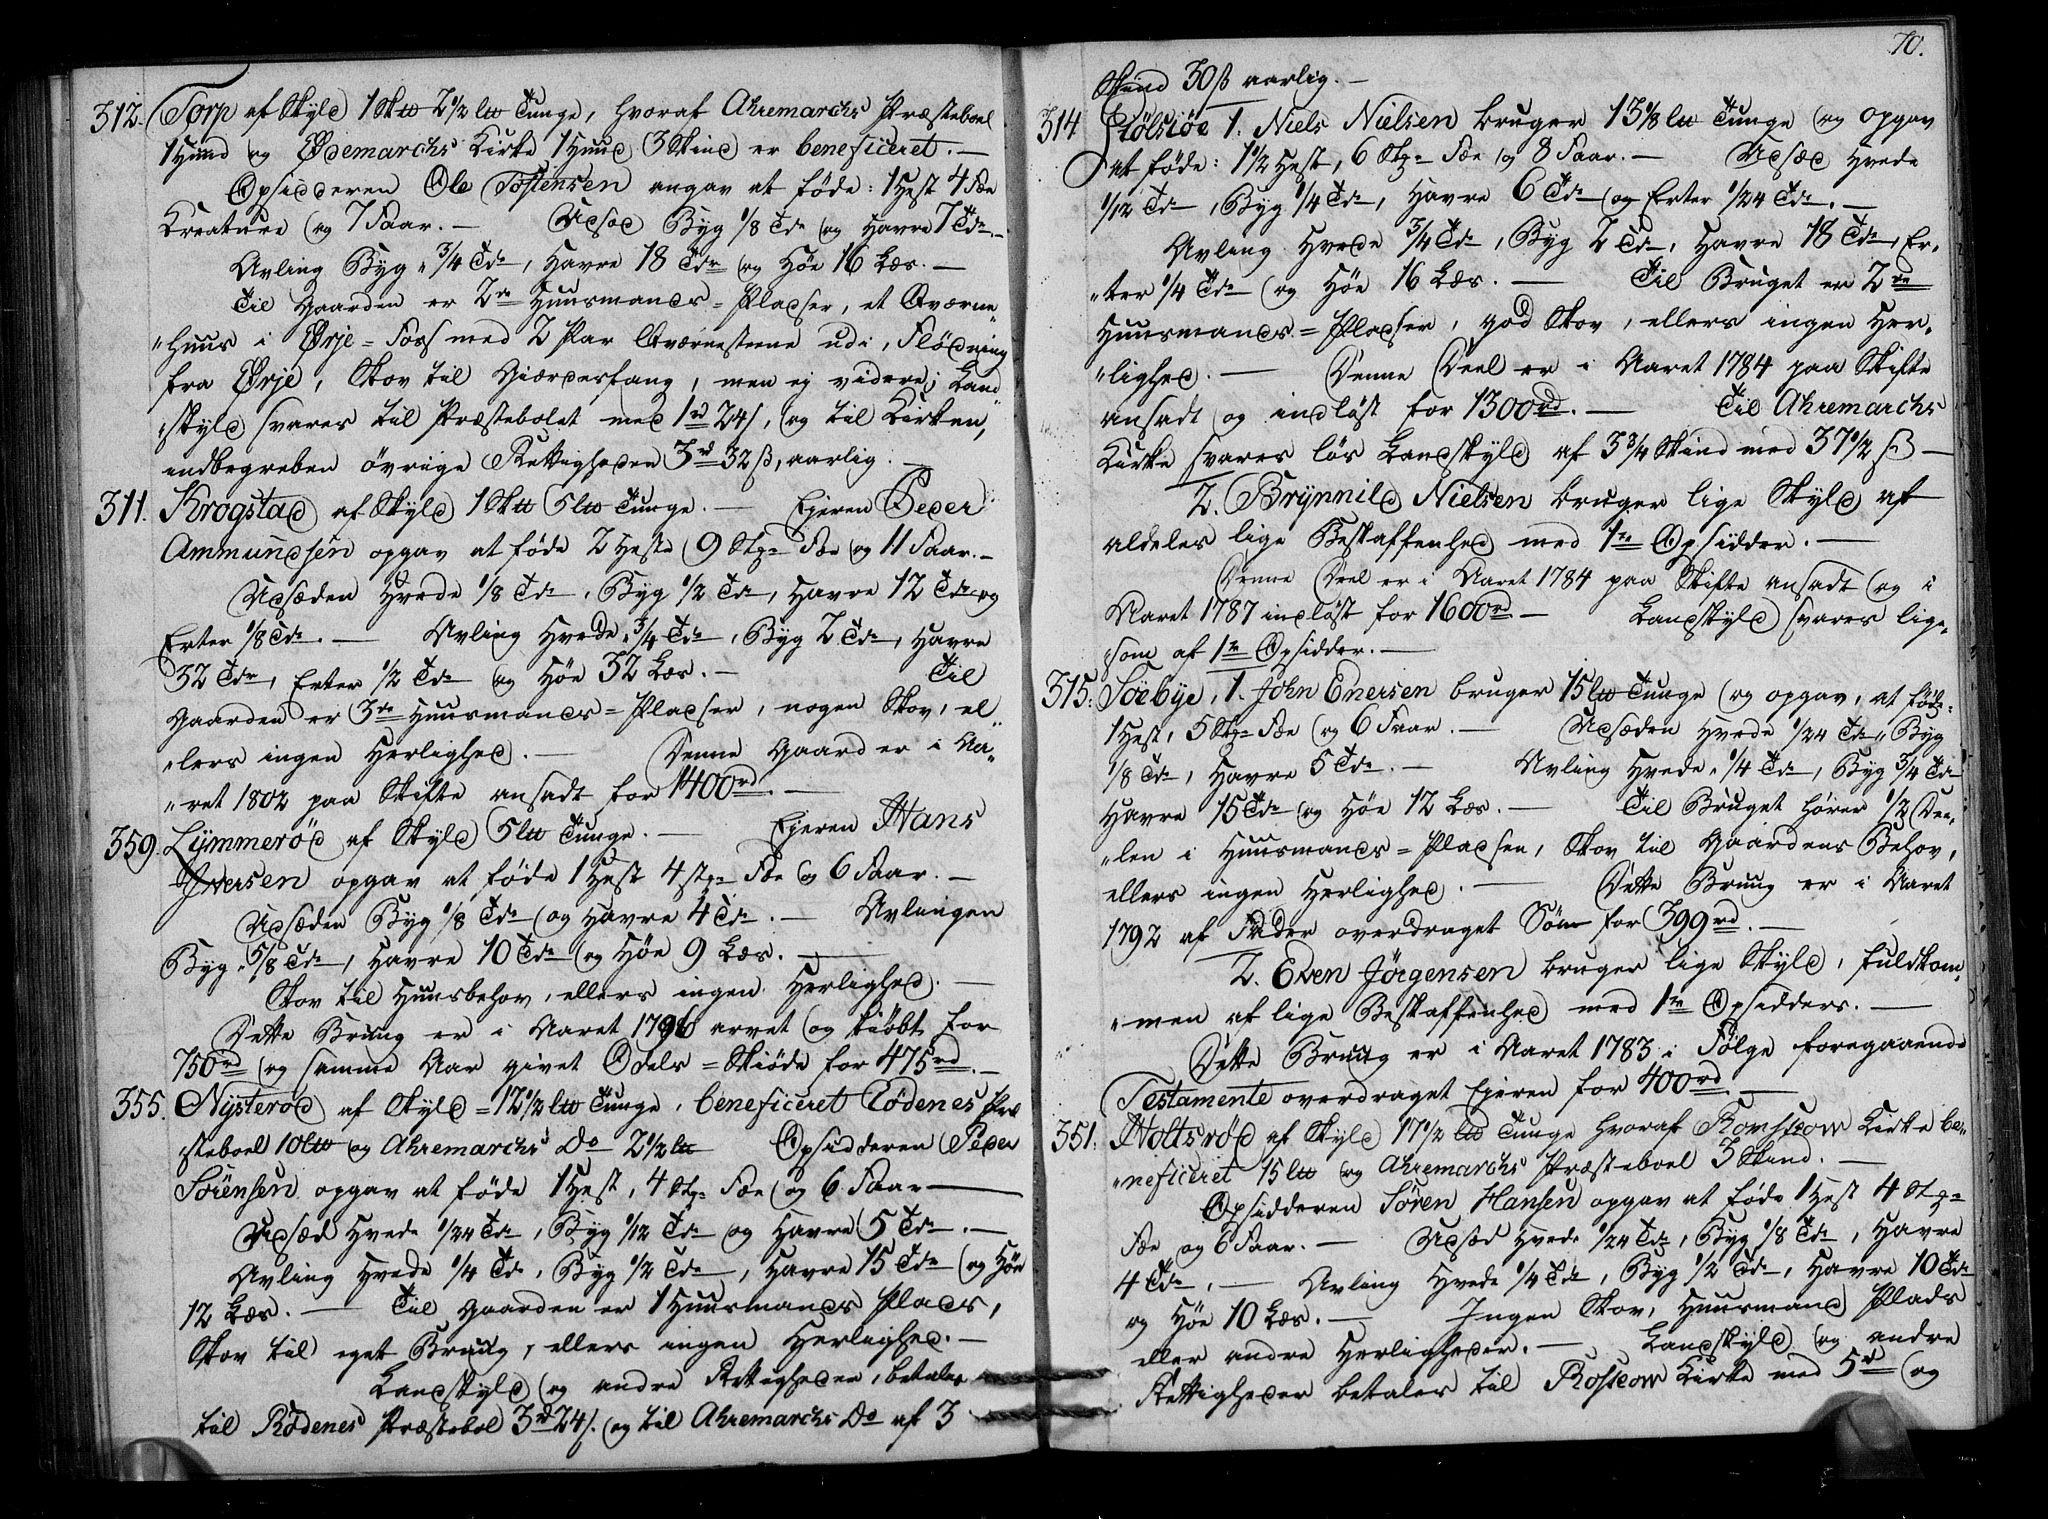 312. Torp af Skyld 1 Sk℔ 2½ l℔ Tunge, hvoraf Ahremarchs Præsteboel
1 Huud og Ødemarchs Kirke 1 Huud 3 Skind er beneficeret. —
Opsidderen Ole Tostensen angav at föde: 1 Hest 4 Fæ
Kreature og 7 Faar. — Udsæd Byg 1/8 Tdr og Havre 7 Tdr. —
Avling Byg 3/4 Tdr, Havre 18 Tdr og Höe 16 Læs. —
Til Gaarden er 2de Huusmands-Pladser, et Qværne-
"huus i Ørje-Foss med 2 Par Qværnesteene udi, Flödning
fra Ørje, Skov til Giærdesfang, men ej videre; Land-
"skyld svares til Præstebolet med 1rd 24 s, og til Kirken,
indbegreben övrige Rettigheder 3rd 32 ß, aarlig. —
311. Krogstad af Skyld 1 Sk℔ 5 l℔ Tunge. — Ejeren Peder
Ammundsen opgav at föde 2 Heste 9 Stk Fæ og 11 Faar. —
Udsæden Hvede 1/8 Tdr, Byg 1/2 Tdr, Havre 12 Tdr og
Erter 1/8 Tdr. — Avling Hvede 3/4 Tdr, Byg 2 Tdr, Havre
32 Tdr, Erter 1/2 Tdr og Höe 32 Læs. — Til
Gaarden er 3de Huusmands-Pladser, nogen Skov, el-
"lers ingen Herlighed. — Denne Gaard er i Aa-
"ret 1802 paa Skifte ansadt for 1400rd. —
359. Lymmeröd af Skyld 5 l℔ Tunge. — Ejeren Hans
Iversen opgav at föde 1 Hest 4 stk Fæ og 6 Faar. —
Udsæden Byg 1/8 Tdr og Havre 4 Tdr. — Avlingen
Byg 5/8 Tdr, Havre 10 Tdr og Höe 9 Læs. —
Skov til Huusbehov, ellers ingen Herlighed. —
Dette Bruug er i Aaret arvet og kiöbt for
750rd og samme Aar givet Odels-Skiöde for 475rd. —
355. Nysteröd af Skyld 12½ l℔ Tunge, beneficeret Rödenes Præ
steboel 10 l℔ og Ahremarchs Do 2½ l℔ Opsidderen Peder
Sörensen opgav at föde 1 Hest, 4 Stk Fæ og 6 Faar —
Udsæd Hvede 1/24 Tdr, Byg 1/12 Tdr og Havre 5 Tdr. —
Avling Hvede 1/4 Tdr, Byg 1/2 Tdr, Havre 15 Tdr og Höe
12 Læs. — Til Gaarden er 1 Huusmands Plads,
Skov til eget Bruug, ellers ingen Herlighed. —
Landskyld og andre Rettigheder, betales
til Rödenes Præstebol 3rd 24 s. og til Ahremarchs Do af 3
70.
Skind 30 ß aarlig. —
314 Hölsiöe 1. Niels Nielsen bruger 13 1/8 l℔ Tunge og opgav
at föde: 1½ Hest, 6 Stk Fæ og 8 Faar. — Udsæd Hvede
1/12 Tdr, Byg 1/4 Tdr, Havre 6 Tdr og Erter 1/24 Tdr. —
Avling Hvede 3/4 Tdr, Byg 2 Tdr, Havre 18 Tdr, Er-
"ter 1/4 Tdr og Höe 16 Læs. — Til Bruget er 2de
Huusmands-Pladser, god Skov, ellers ingen Her-
"lighed. — Denne Deel er i Aaret 1784 paa Skifte
ansadt og indlöst for 1300rd. — Til Ahremarchs
Kirke svares lös Landskyld af 3¾ Skind med 37½ ß —
2. Brynnild Nielsen bruger lige Skyld af
aldeles lige Beskaffenhed med 1te Opsidder. —
Denne Deel er i Aaret 1784 paa Skifte ansadt og i
Aaret 1787 indlöst for 1600rd — Landskyld svares lige-
"som af 1te Opsidder. —
315. Söebye, 1. John Enersen bruger 15 l℔ Tunge og opgav, at föde:
1 Hest, 5 Stk Fæ og 6 Faar. — Udsæden Hvede 1/24 Tdr, Byg
1/8 Tdr, Havre 5 Tdr. — Avling Hvede 1/4 Tdr, Byg 3/4 Tdr
Havre 15 Tdr og Höe 12 Læs. — Til Bruget hörer 1/2 Dee-
"len i Huusmands-Pladsen, Skov til Gaardens Behov,
ellers ingen Herlighed. — Dette Bruug er i Aaret
1792 af Fader overdraget Sön for 399rd. —
2. Even Jörgensen bruger lige Skyld, fuldkom-
"men af lige Beskaffenhed med 1te Opsidders. —
Dette Bruug er i Aaret 1783 i Fölge foregaaende
Testamente overdraget Ejeren for 400rd —
351. Holtsröd af Skyld 17½ l℔ Tunge hvoraf Kirke be-
"neficeret 15 l℔ og Ahremarchs Præsteboel 3 Skind. —
Opsidderen Sören Hansen opgav at föde 1 Hest 4 Stk
Fæ og 6 Faar. — Udsæd Hvede 1/24 Tdr, Byg 1/8 Tdr, Havre
4 Tdr. — Avling Hvede 1/4 Tdr, Byg 1/2 Tdr, Havre 10 Tdr
og Höe 10 Læs. — Ingen Skov, Huusmand Plads
eller andre Herligheder. — Landskyld og andre
Rettigheder betales til Kirke med 5rd og